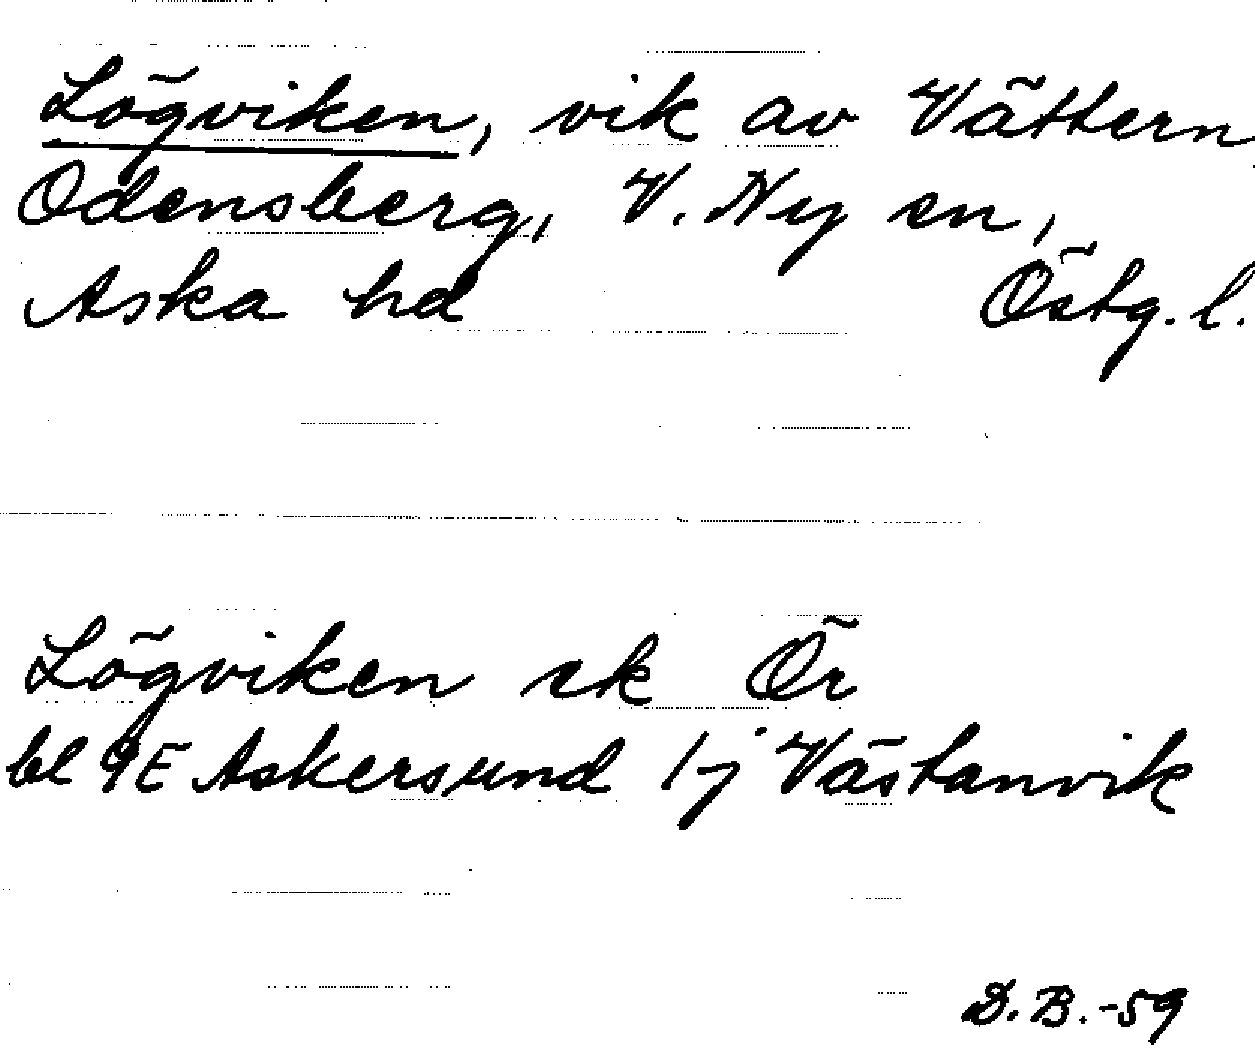 Lögviken, vik av Vättern,
Odensberg, V. Ny sn,
Aska hd Östg. l.
Lögviken ek Ör
bl 9E Askersund 1-j Västanvik
D.B.-59